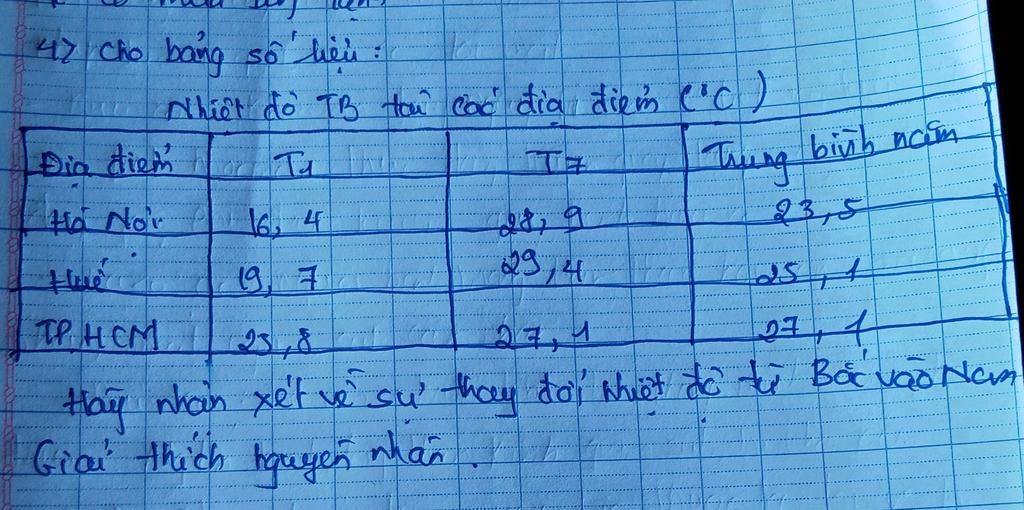 4> Cho bảng số liệu:
Nhiệt độ TB tại các địa điểm (°C)
Địa điểm T1 T7 Trung bình năm
Hà Nội 16,4 28,9 23,5
Huế 19,7 29,4 25,1
TP.HCM 25,8 27,1 27,1
Hãy nhận xét về sự thay đổi nhiệt độ từ Bắc vào Nam
Giải thích nguyên nhân.